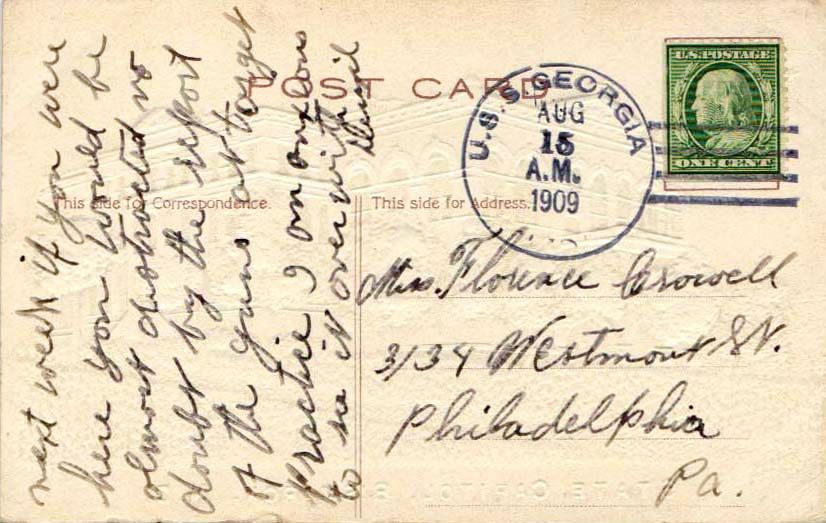 POST CARD
U.S.S. GEORGIA
AUG
15
A.M.
1909
U.S. POSTAGE
ONE CENT
This side for Correspondence.
This side for Address.
next week if you were
here you would be
almost distracted no
doubt by the report
of the guns at target
Practice I am anxious
to see it over with
Miss. Florence Crowell
3134 Westmont St.
Philadelphia
Pa.